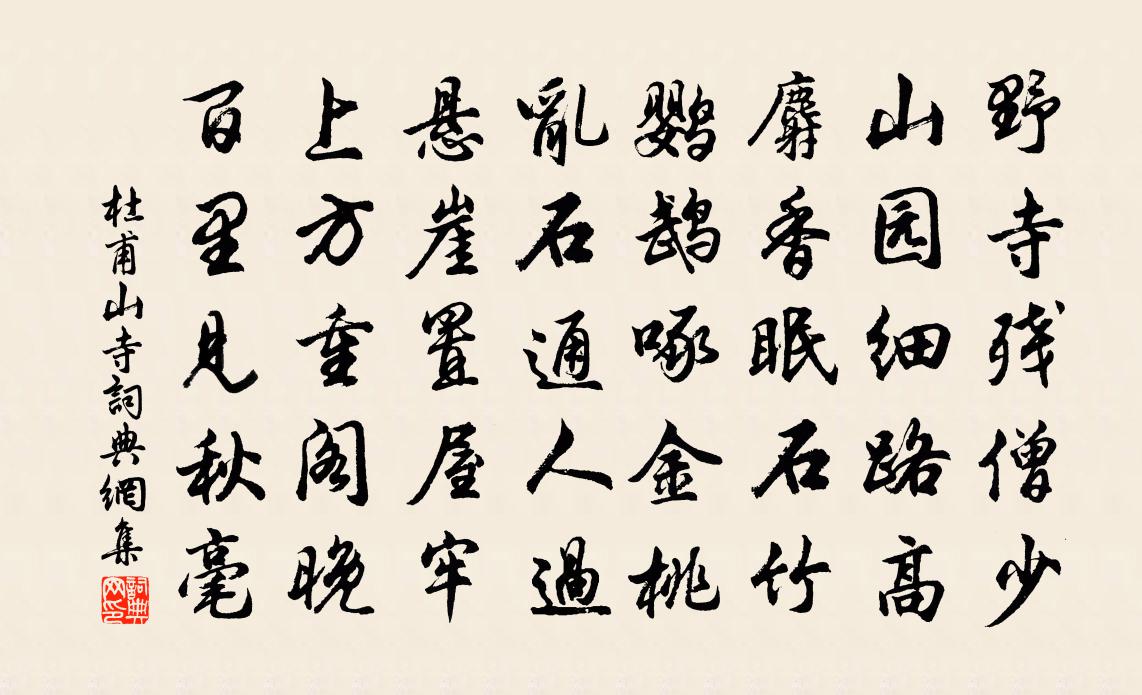 野寺残僧少
山园细路高
麝香眠石竹
鹦鹉啄金桃
亂石通人過
悬崖置屋牢
上方重阁晚
百里見秋毫
杜甫山寺詞典網集
詞典网印